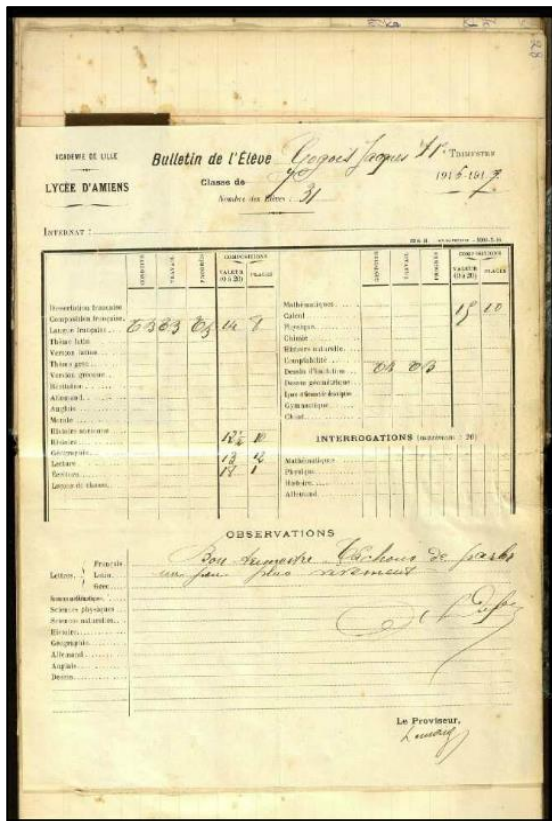 ACADÉMIE DE LILLE
LYCÉE D'AMIENS
Bulletin de l'Élève Gogois Jacques II TRIMESTRE
Classe de 7e 1916-1917
Nombre des Élèves : 31
INTERNAT :
CONDUITE TRAVAIL PROGRÈS COMPOSITIONS VALEUR (0 à 20) PLACES
Dissertation française
Composition française
Langue française TB TB TB 14 8
Thème latin
Version latine
Thème grec
Version grecque
Récitation
Allemand
Anglais
Morale
Histoire ancienne
Histoire 12½ 10
Géographie
Lecture 13 12
Écriture 18 1
Leçons de choses
CONDUITE TRAVAIL PROGRÈS COMPOSITIONS VALEUR (0 à 20) PLACES
Mathématiques
Calcul 15 10
Physique
Chimie
Histoire naturelle
Comptabilité
Dessin d'imitation
Dessin géométrique
Gymnastique
Chant
INTERROGATIONS (maximum : 20)
Mathématiques
Physique
Histoire
Allemand
OBSERVATIONS
Lettres. Français
Latin
Grec
Bon trimestre Tâchons de parler
un peu plus vivement
Mathématiques
Sciences physiques
Sciences naturelles
Histoire
Géographie
Allemand
Anglais
Dessin
Le Proviseur,